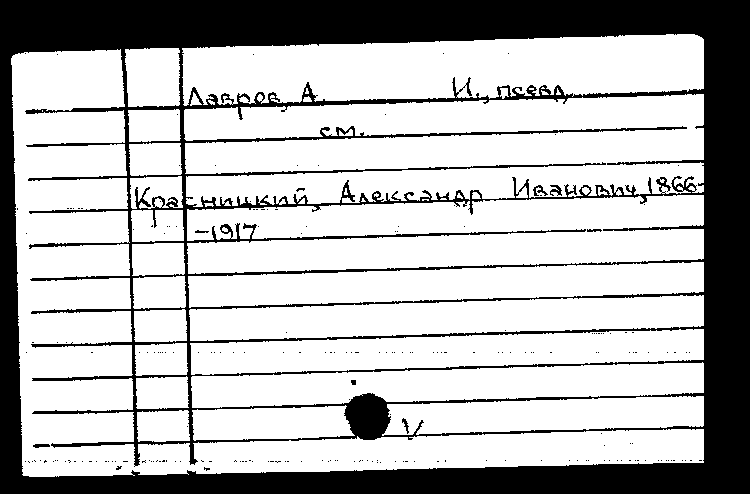 Лавров, А. И., псевд.
см.
Красницкий, Александр Иванович, 1866-
-1917
V